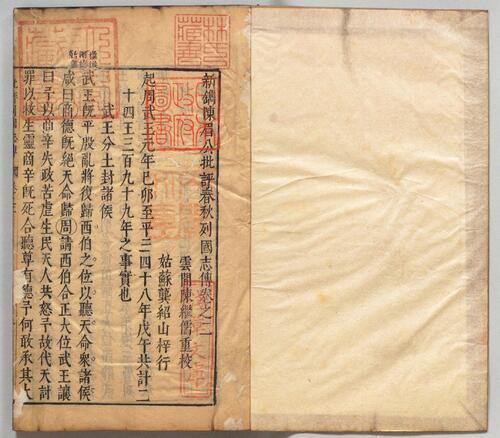 林氏藏書
日本政府圖書
新鐫陳眉公批評春秋列國志傳卷之二
雲間陳繼儒重校
姑蘇龔紹山梓行
起周武王元年己卯至平王四十八年戊午共計二
十四王三百九十九年之事實也
武王分土封諸侯
武王既平殷亂將復歸西伯之位以聽天命衆諸侯
咸曰商德既絕天命歸周請西伯合正大位武王讓
曰予以商辛失政苦虐生民天人共怒予故代天討
罪以救生靈商辛既死合聽尊有德予何敢承其大